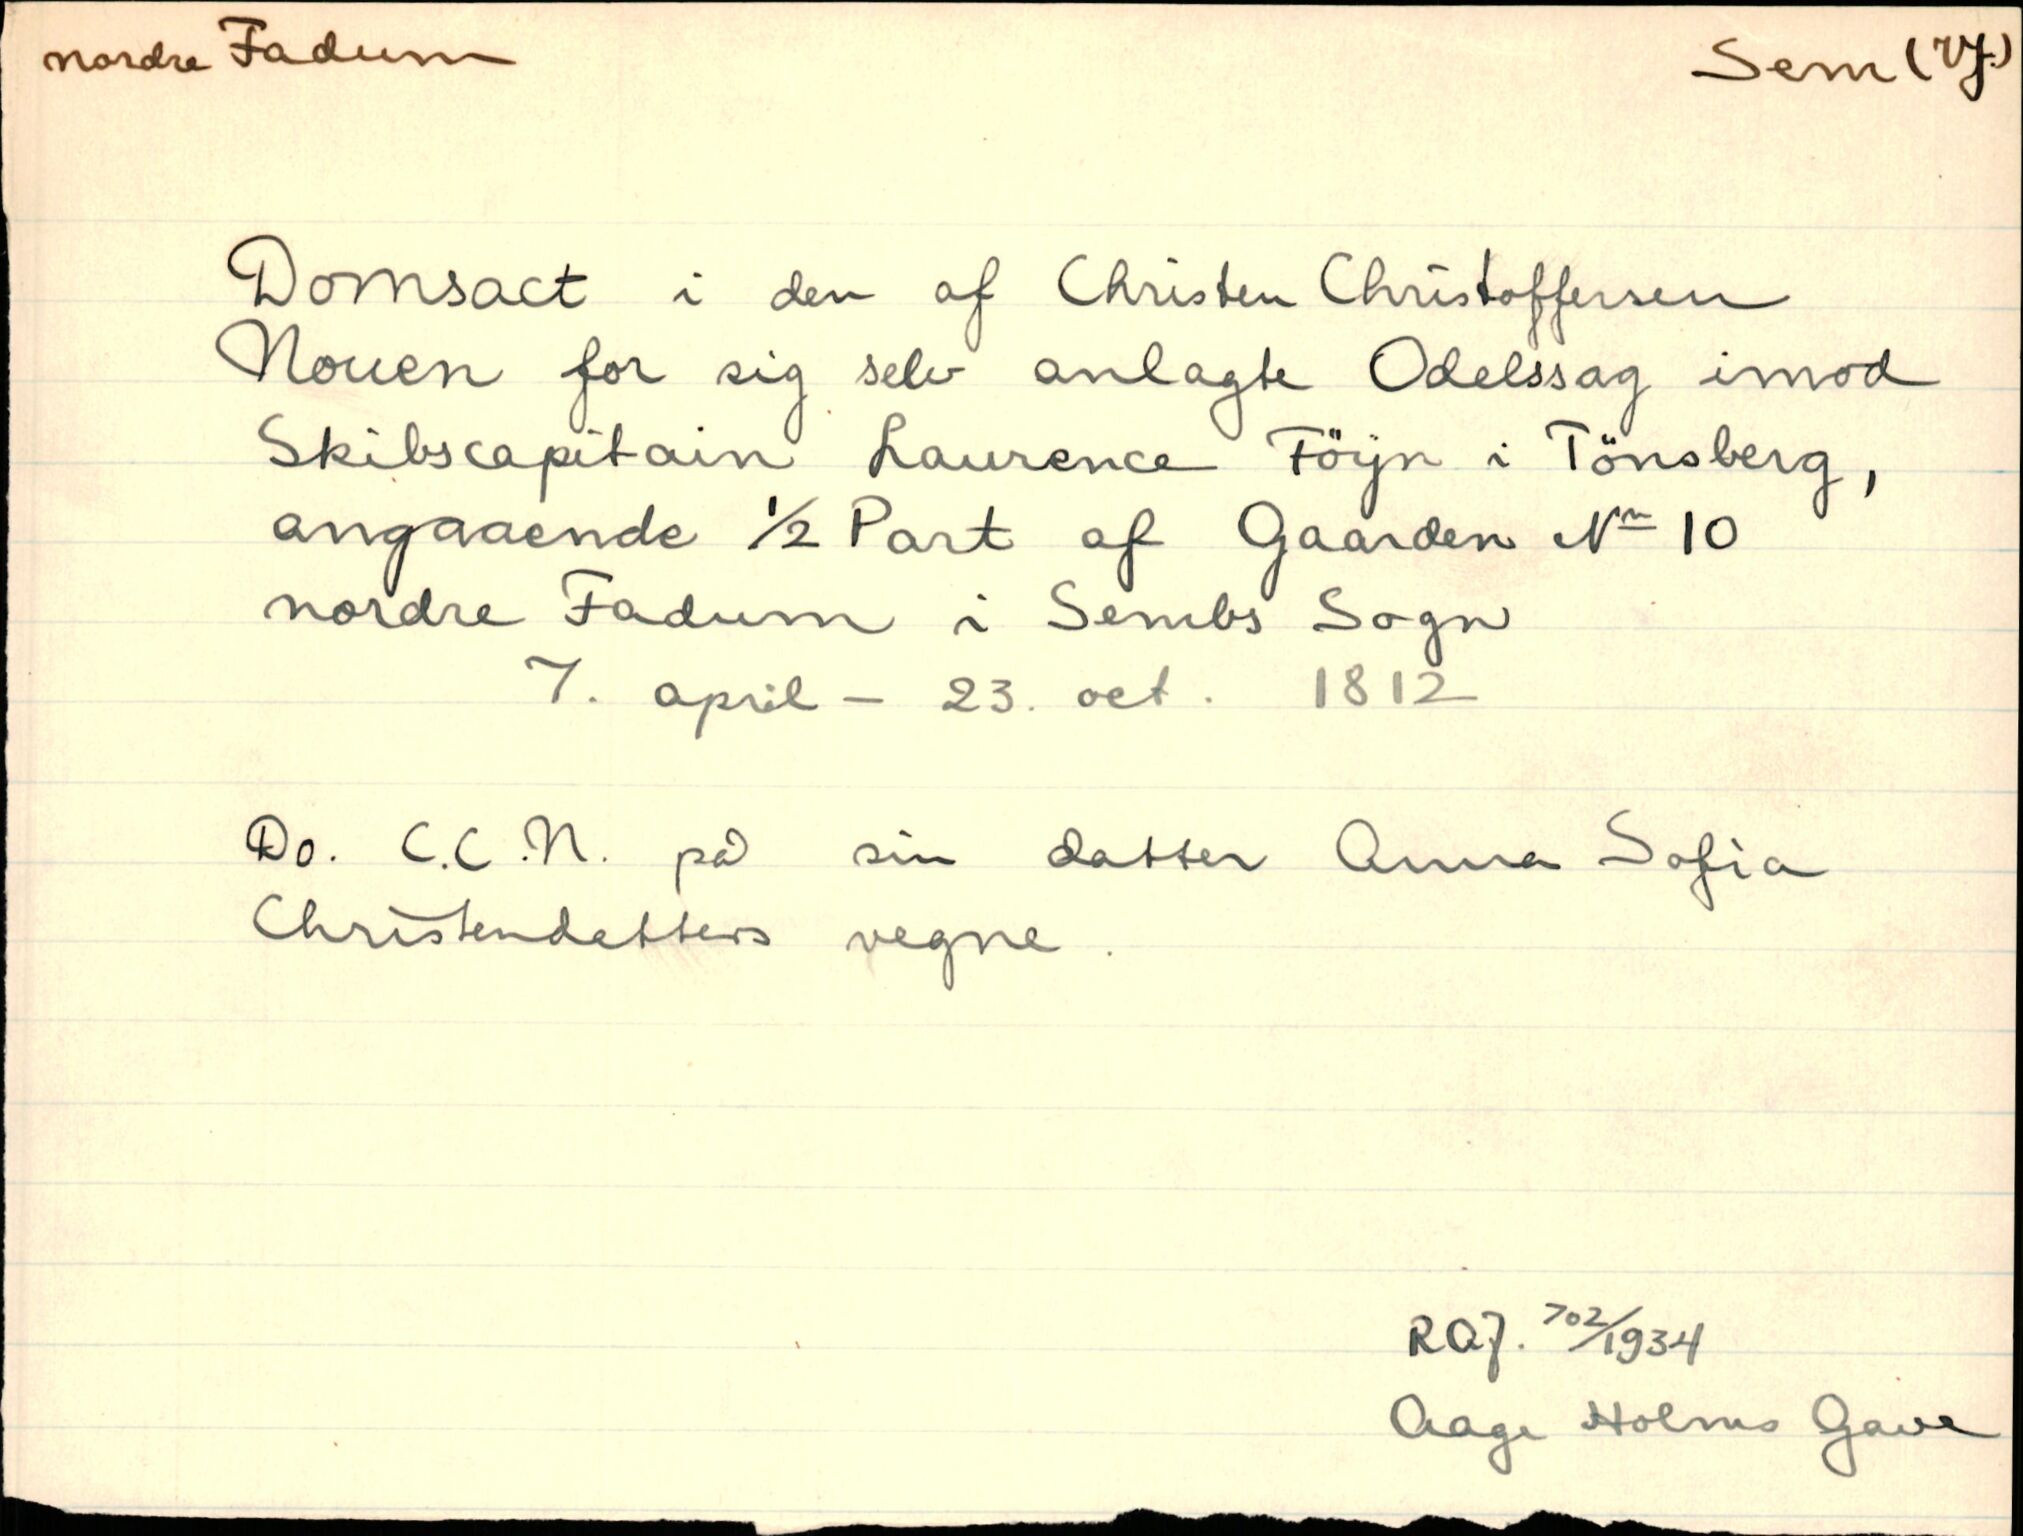 nordre Fadum Sem (Vf.)
Domsact i den af Christen Christoffersen
Nouen for sig selv anlagte Odelssag imod
Skibscapitain Laurence Föyn i Tönsberg,
angaaende 1/2 Part af Gaarden Nr 10
nordre Fadum i Sembs Sogn
7. april - 23. oct. 1812
Do. C.C.N. på sin datter Anna Sofia
Christendatters vegne.
702/1934
Aage Holms Gave